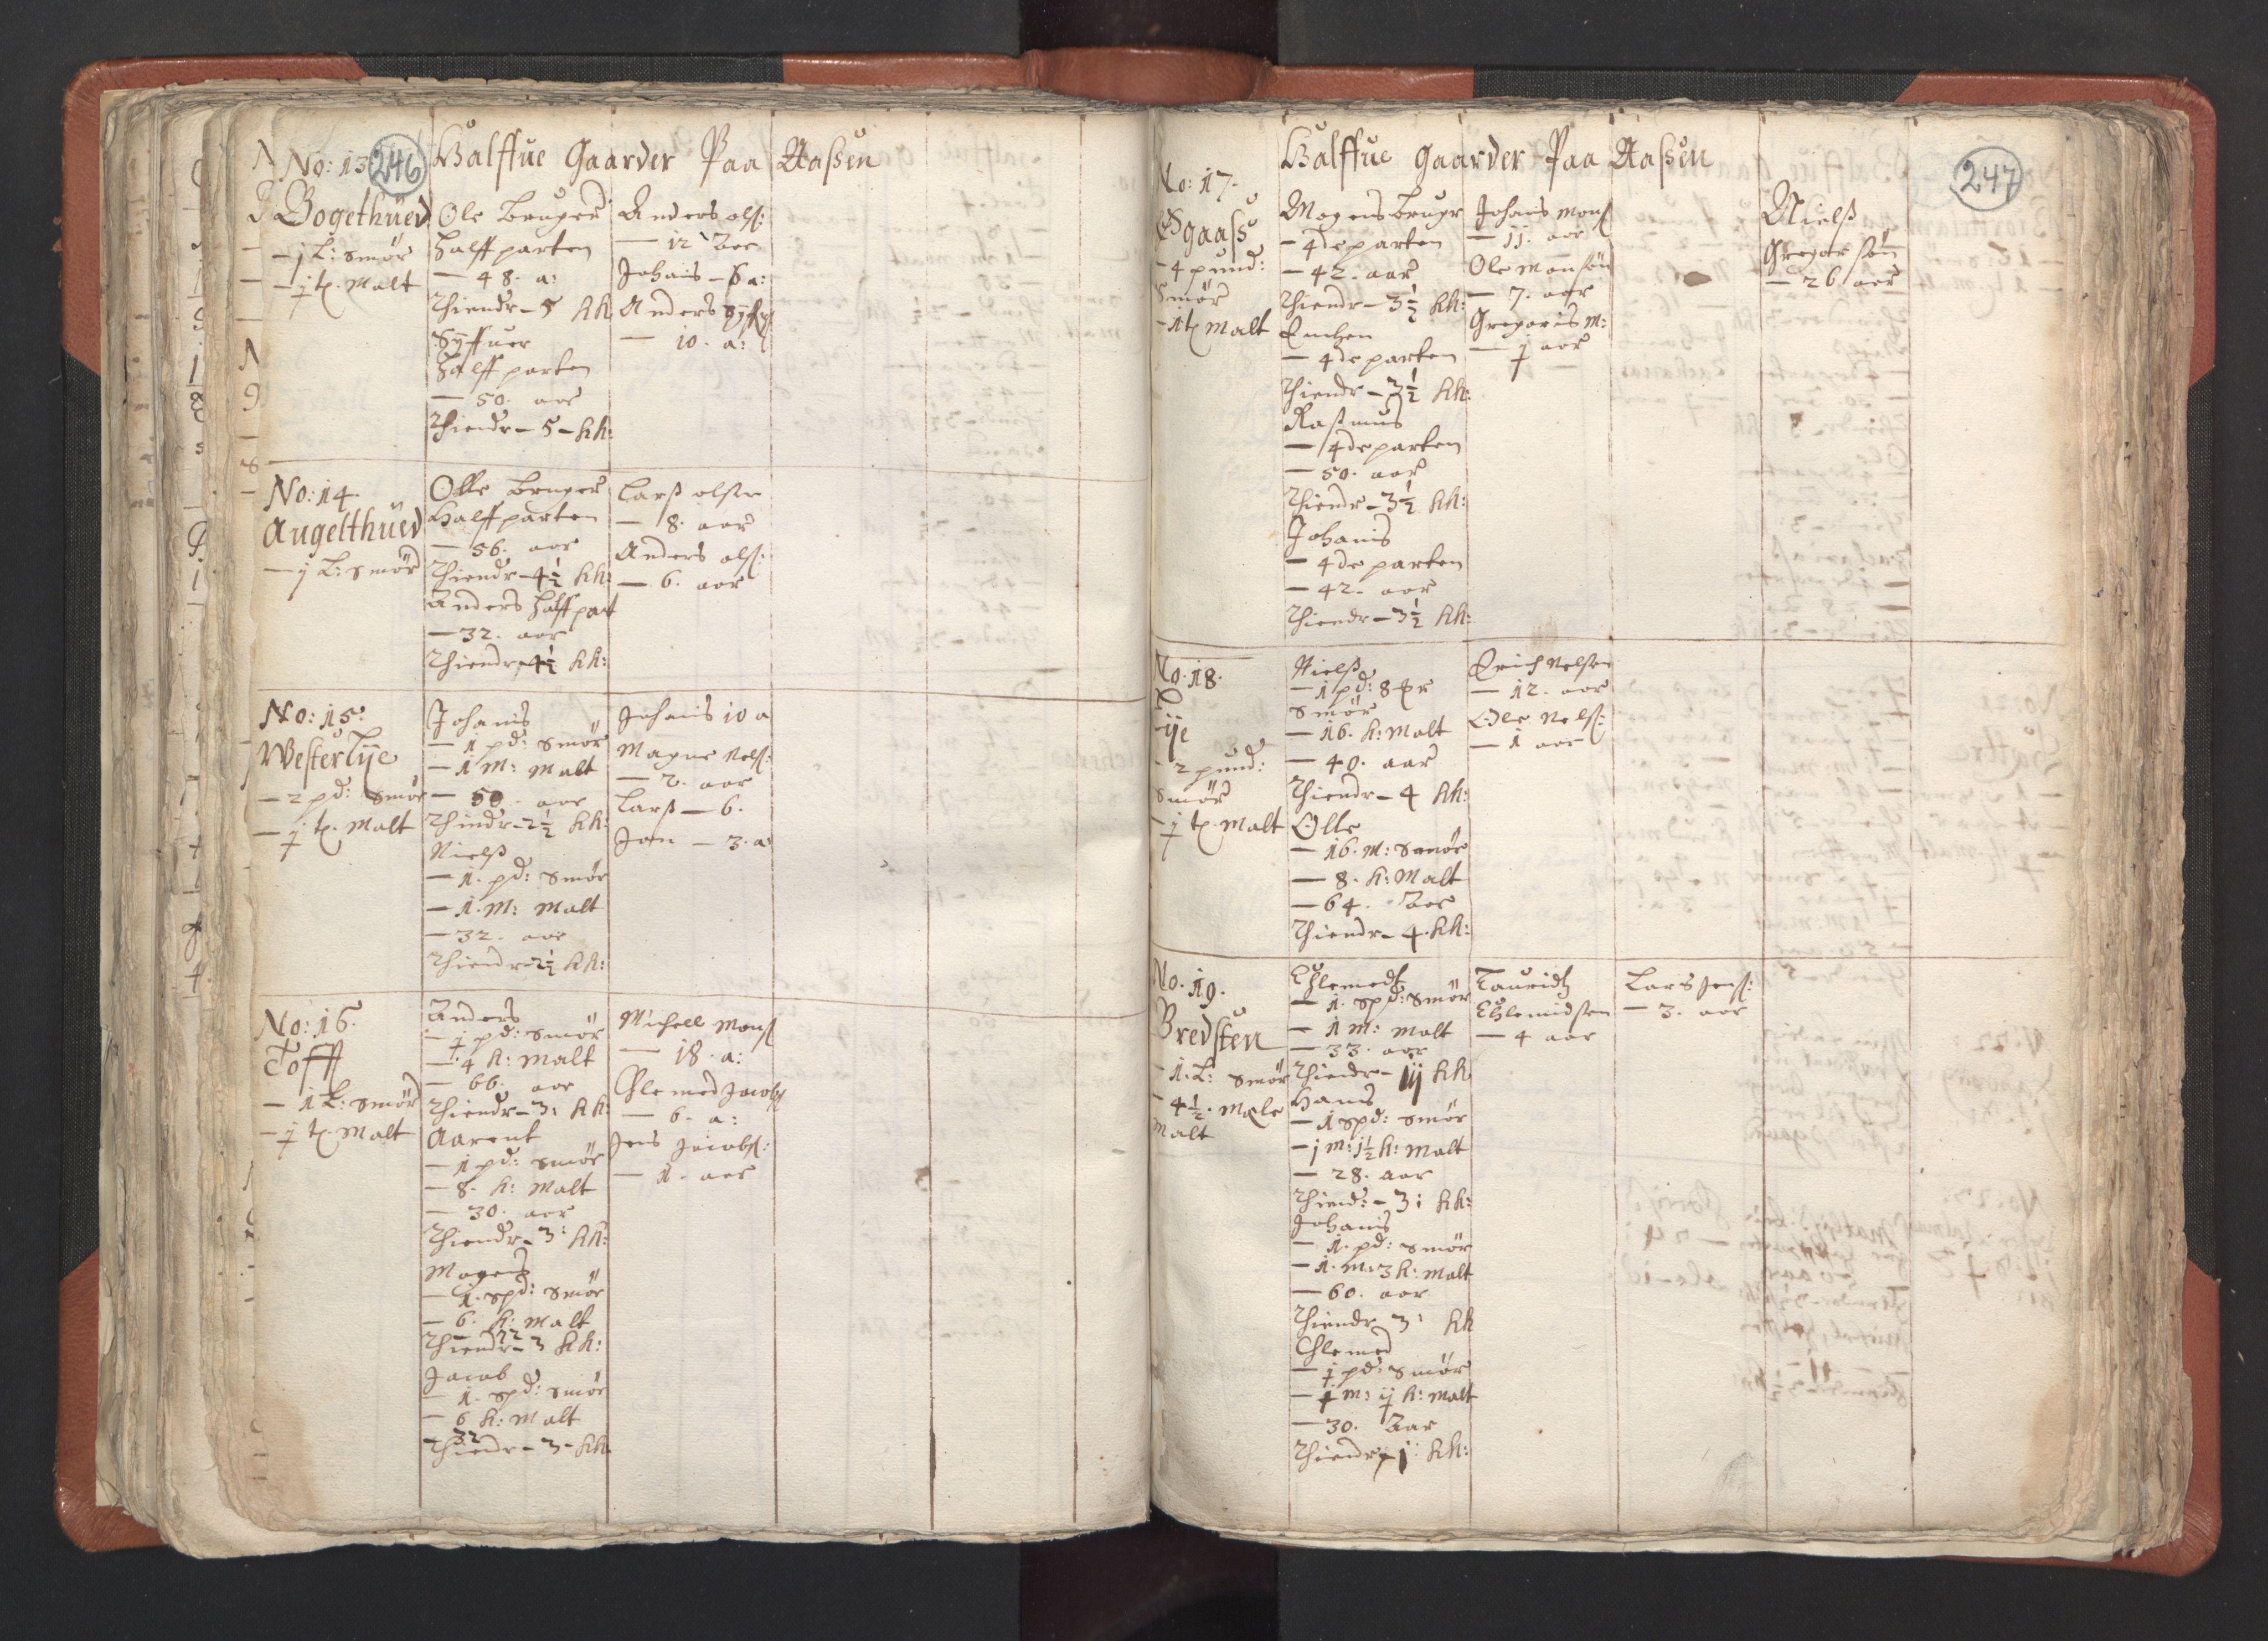 246
Halffue Gaarder Paa Aassen
No: 13
Bogethued
- j L: smør
- j t. Malt
Ole bruger
halff parten
- 48. a:
Thiendr - 5 kk
Syffuer
halff parten
- 50. aar
Thiendr - 5 - kk:
Anders ols:
- 12 Aar
Johanis - 6 a:
Anders
- 10. a:
No: 14.
Augelthued
- j L: smør
Olle bruger
Halff parten
- 56. aar
Thiendr - 4½ kk:
Anders halff part
- 32. aar
Thiendr - 4½ kk:
Larss olsen
- 8. aar
Anders ols:
- 6. aar
No: 15:
Westerlije
- 2 pd: smør
- j t. Malt
Johanis
- 1 pd: smør
- 1 M: Malt
- 50. aar
Thiendr - 2½ kk:
Nielss
- 1. pd: smør
- 1. M: Malt
- 32. aar
Thiendr - 2½ kk:
Johanis 10 a
Magne Nels:
- 2. aar
Larss - 6.
Jon - 3. a
No: 16.
Tofft
- 1 L: smør
- j t. Malt
Anders
- j pd: smør
- 4 k: Malt
- 66. aar
Thiendr - 3: kk:
Aarent
- 1 pd: smør
- 8. k: Malt
- 30. aar
Thiendr - 3: kk:
Mogens
- 1. spd: smør
- 6. k: Malt
- 22
Thiendr - 3 kk:
Jacob
- 1. spd: smør
- 6 k: Malt
32
Thiendr - 3 - kk
Michell Mons
- 18. a:
Clemed Jacobs
- 6. a:
Jens Jacobs:
- 1. aar
247
Halffue gaarder Paa Aassen
No: 17.
Egaass
- 4 pund:
smør
- 1 t. Malt
Mogens brugr
- 4de parten
- 42. aar
Thiendr - 3½ kk:
Enchen
- 4de parten
Thiendr - 3½ kk:
Rasmus
- 4de parten
- 50. aar
Thiendr - 3½ kk:
Johanis
- 4de parten
- 42. aar
Thiendr - 3½ kk:
Johanis Mons
- 11. aar
Ole Monsøn
- 7. aar
Gregoris M:
- j aar
Nielss
Gregorsøn
- 26 aar
No. 18.
Lije
- 2 pund:
smør
- j t. Malt
Nielss
- 1 pd: 8
smør
- 16. k: Malt
- 40. aar
Thiendr - 4 kk:
Olle
- 16. M: smør
- 8. k: Malt
- 64. Aar
Thiendr - 4. kk:
Erich Nelsen
- 12. aar
Ole Nels:
- 1 aar
No. 19.
Bredsten
- 1. L: smør
- 4½. Mele
Malt
Chlemedt
- 1. spd: smør
- 1 M: Malt
- 33. aar
Thiendr - iij kk
Hans
- 1 spd: smør
- j M: 1½ k: Malt
- 28. aar
Thiend: - 3: kk:
Johanis
- 1. pd: smør
- 1. M: 3 k: Malt
- 60. aar
Thiendr 3: kk
Chlemed
- j pd: smør
- j M: ij k: Malt
- 30. Aar
Thiendr - j: kk:
Lauridtz
Chlemidsen
- 4 aar
Lars Jens:
- 3. aar